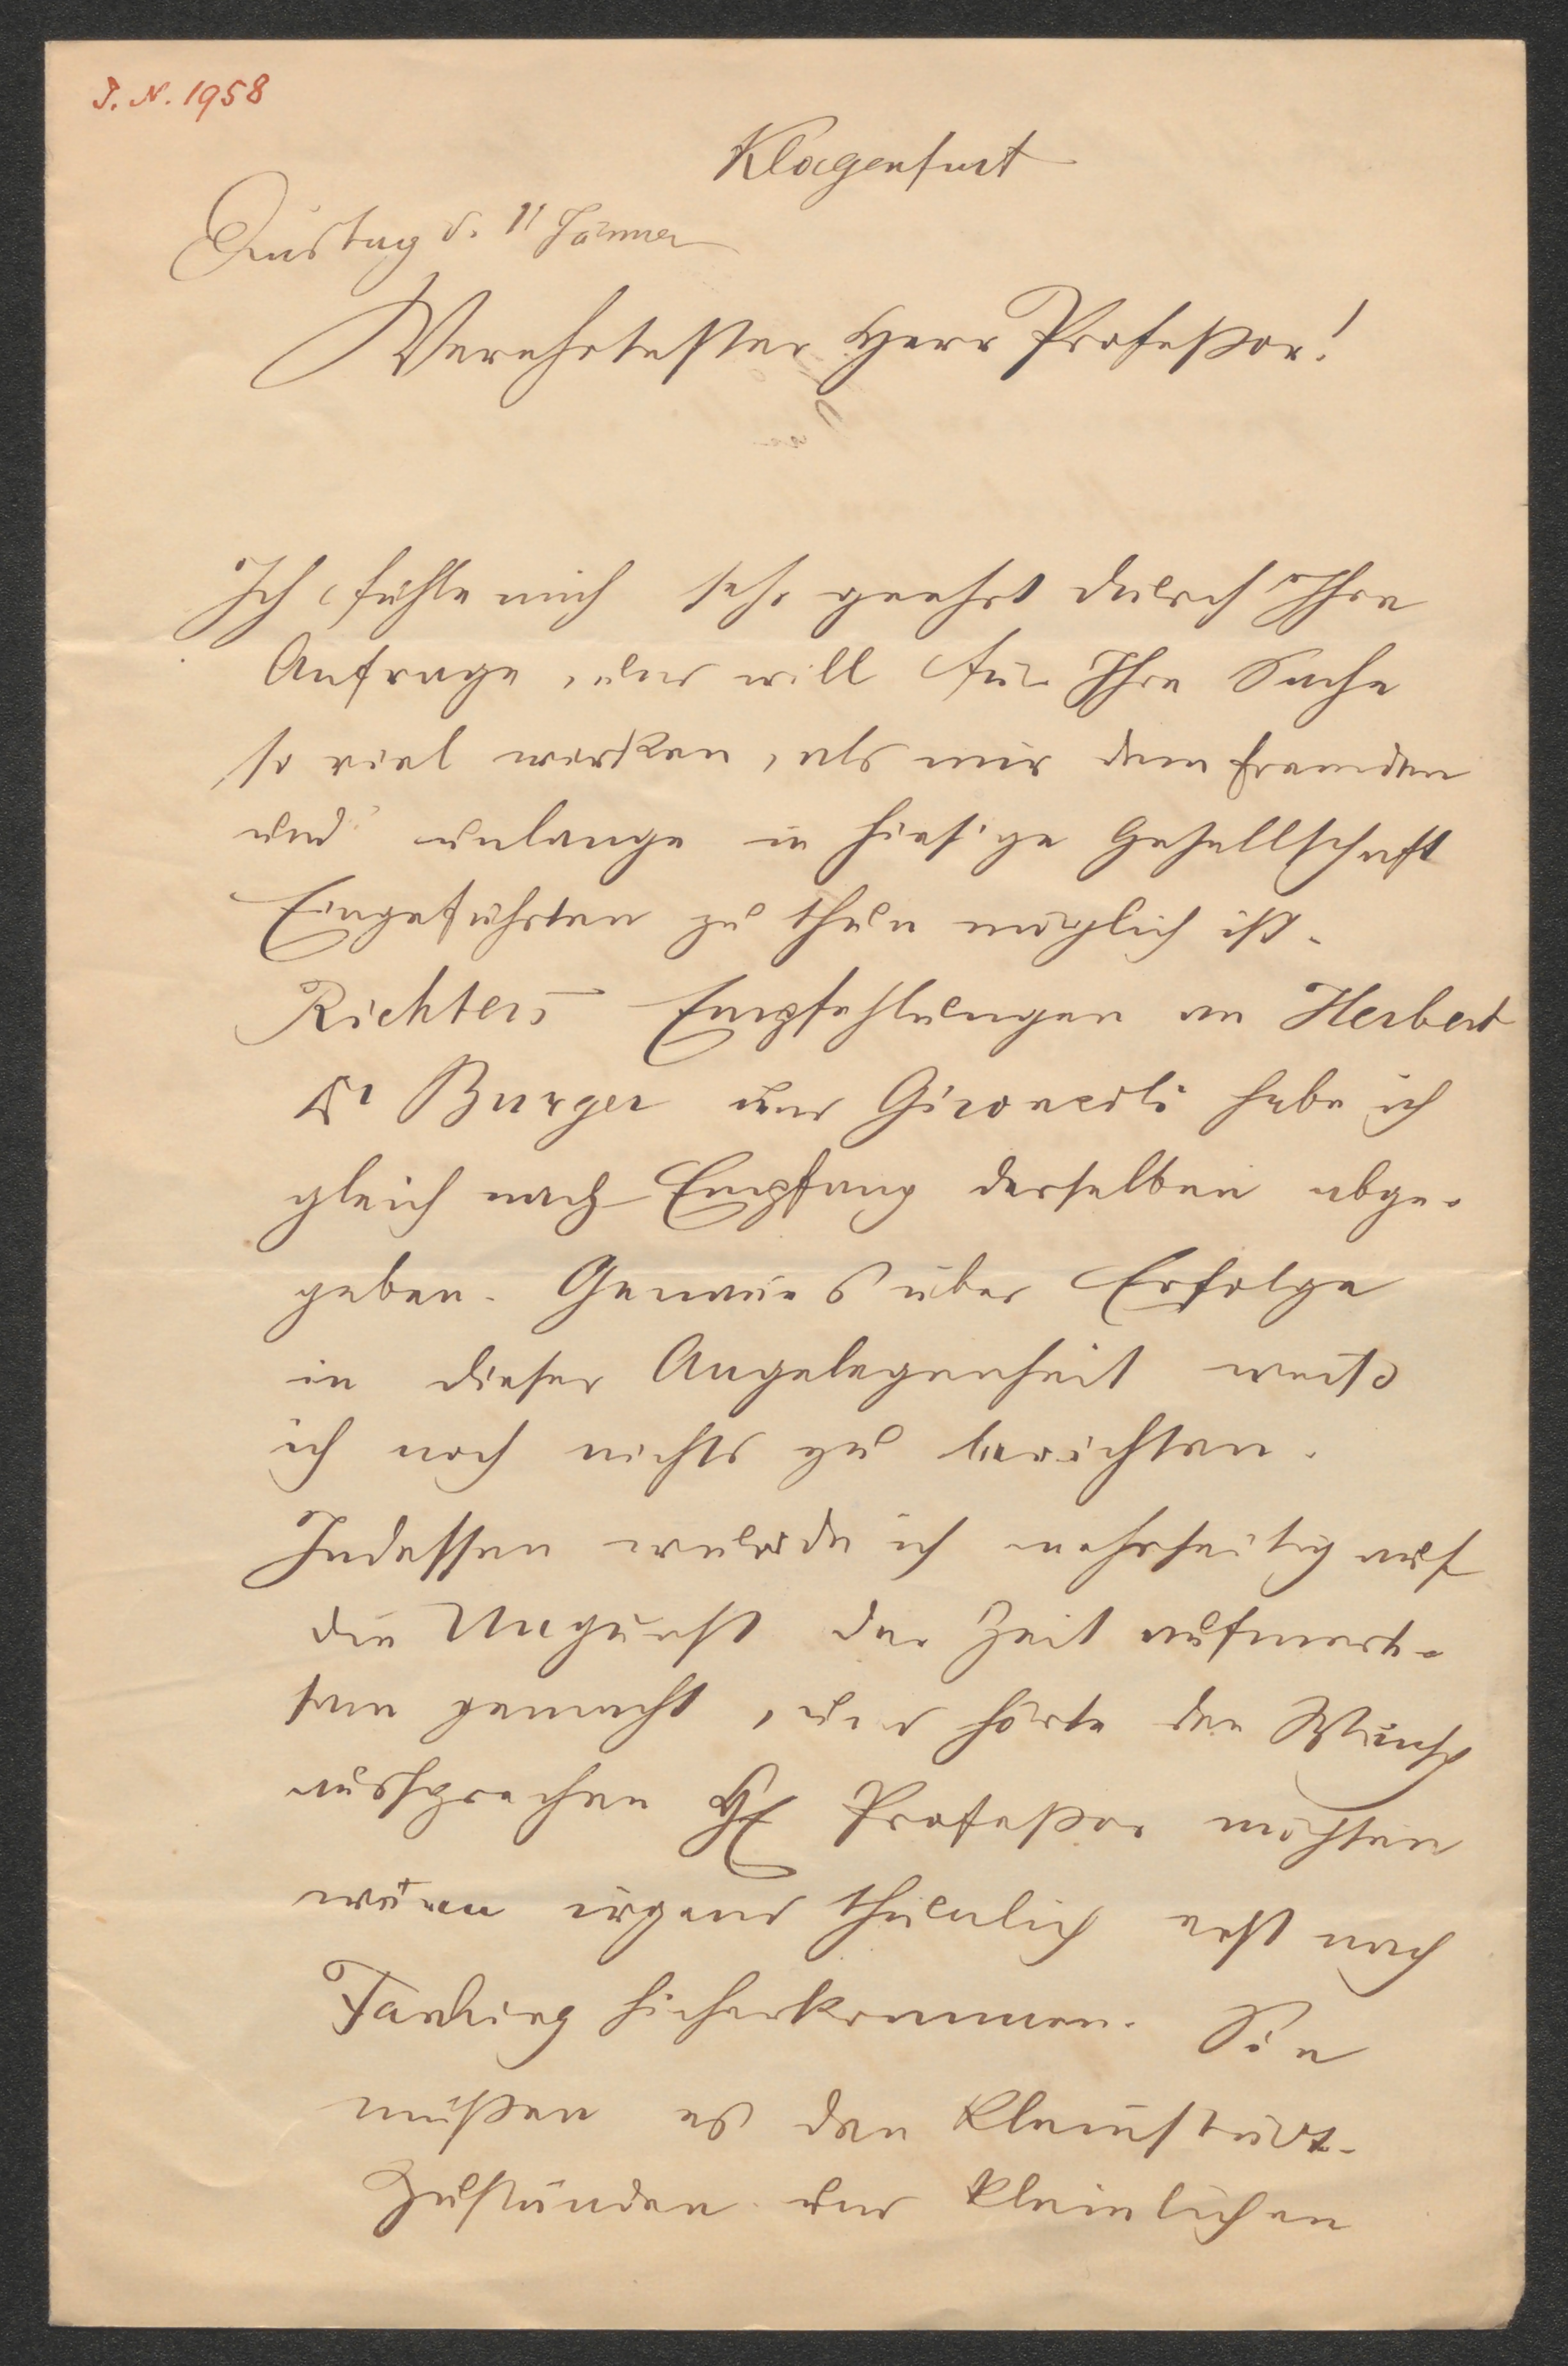 J. N. 1958
Klagenfurt
Dienstag d. 11 Jänner
Verehrtester Herr Profeßor!
Ich fühle mich sehr geehrt durch Ihre
Anfrage, und will für Ihre Sache
so viel wirken, als mir dem fremden
und unlange in hiesige Gesellschaft
Eingeführten zu thun möglich ist.
Richters Empfehlungen an Herbert
Dr Burger und Gironcoli habe ich
gleich nach Empfang derselben abge-
geben. Genaues über Erfolge
in dieser Angelegenheit weiß
ich noch nichts zu berichten.
Indessen wurde ich mehrseitig auf
die Ungunst der Zeit aufmerk-
sam gemacht, und hörte den Wunsch
aussprechen H Profeßor möchten
wenn irgend thunlich erst nach
Fasching hieherkommen. Sie
müßen es den Kleinstadt-
Zuständen und kleinlichen